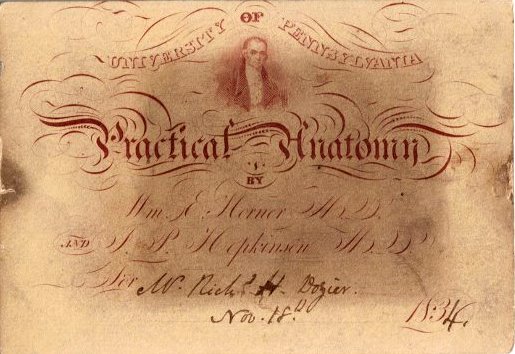 UNIVERSITY OF PENNSYLVANIA
Practical Anatomy
BY
Wm. E. Horner M.D.
AND J. P. Hopkinson M.D.
For Mr. Richd. H. Dozier.
Nov. 18th 1834.